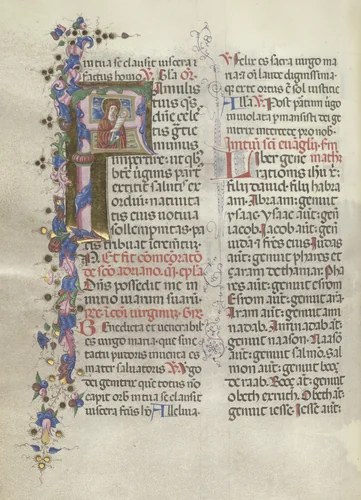 in tua se clausit viscera
factus homo. V. Gla. Or.
Famulis
tuis qs.
dñe cele
stis gr̃tie
munus
impertire: ut qb
beate v̓ginis part
extitit salutis ex
ordiũ: natiuita
tis eius uotiua
sollempnitas pa
cis tribuat icremẽtũ. p.
Et fit comẽoratio
de sc̃o adriano.
Dñs possedit me in
initio uiarum suarũ
Gr.
Benedicta et uenerabil
es uirgo maria: que sine
tactu pudoris inuenta es
mater saluatoris. V. V̓go
dei genitrix quẽ totus nõ
capit orbis in tua se clausit
uiscera fc̃us hõ. Alleluia.
V. Felix es sacra uirgo ma
ria &amp; oĩ laude dignissima.
q̃ ex te ortus ẽ sol iustitie
Alla. V. Post partum v̓go
inuiolata p̃mansisti dei ge
nitrix intercede pro nob.
Initiũ sc̃i euãglij. sm̃
Liber gene math.
rationis ihu xp̃i
filij dauid. filij habra
am. Abraam: genuit
ysaac. ysaac aut̃: geñ
iacob. Iacob aut̃: geñ
iuda &amp; fr̃es eius. Iudas
aut̃: genuit phares et
çaram de thamar. Pha
res aut̃: genuit esrom
Esrom aut̃: genuit aram
Aram aut̃: genuit am
nadab. Aminadab aut̃:
genuit naason. Naasõ
aut̃: genuit salmõ. Sal
mon aut̃: genuit booç
de raab. Booç aut̃: genuit
obeth ex ruth. Obeth aut̃:
genuit iesse. Iesse aut̃: